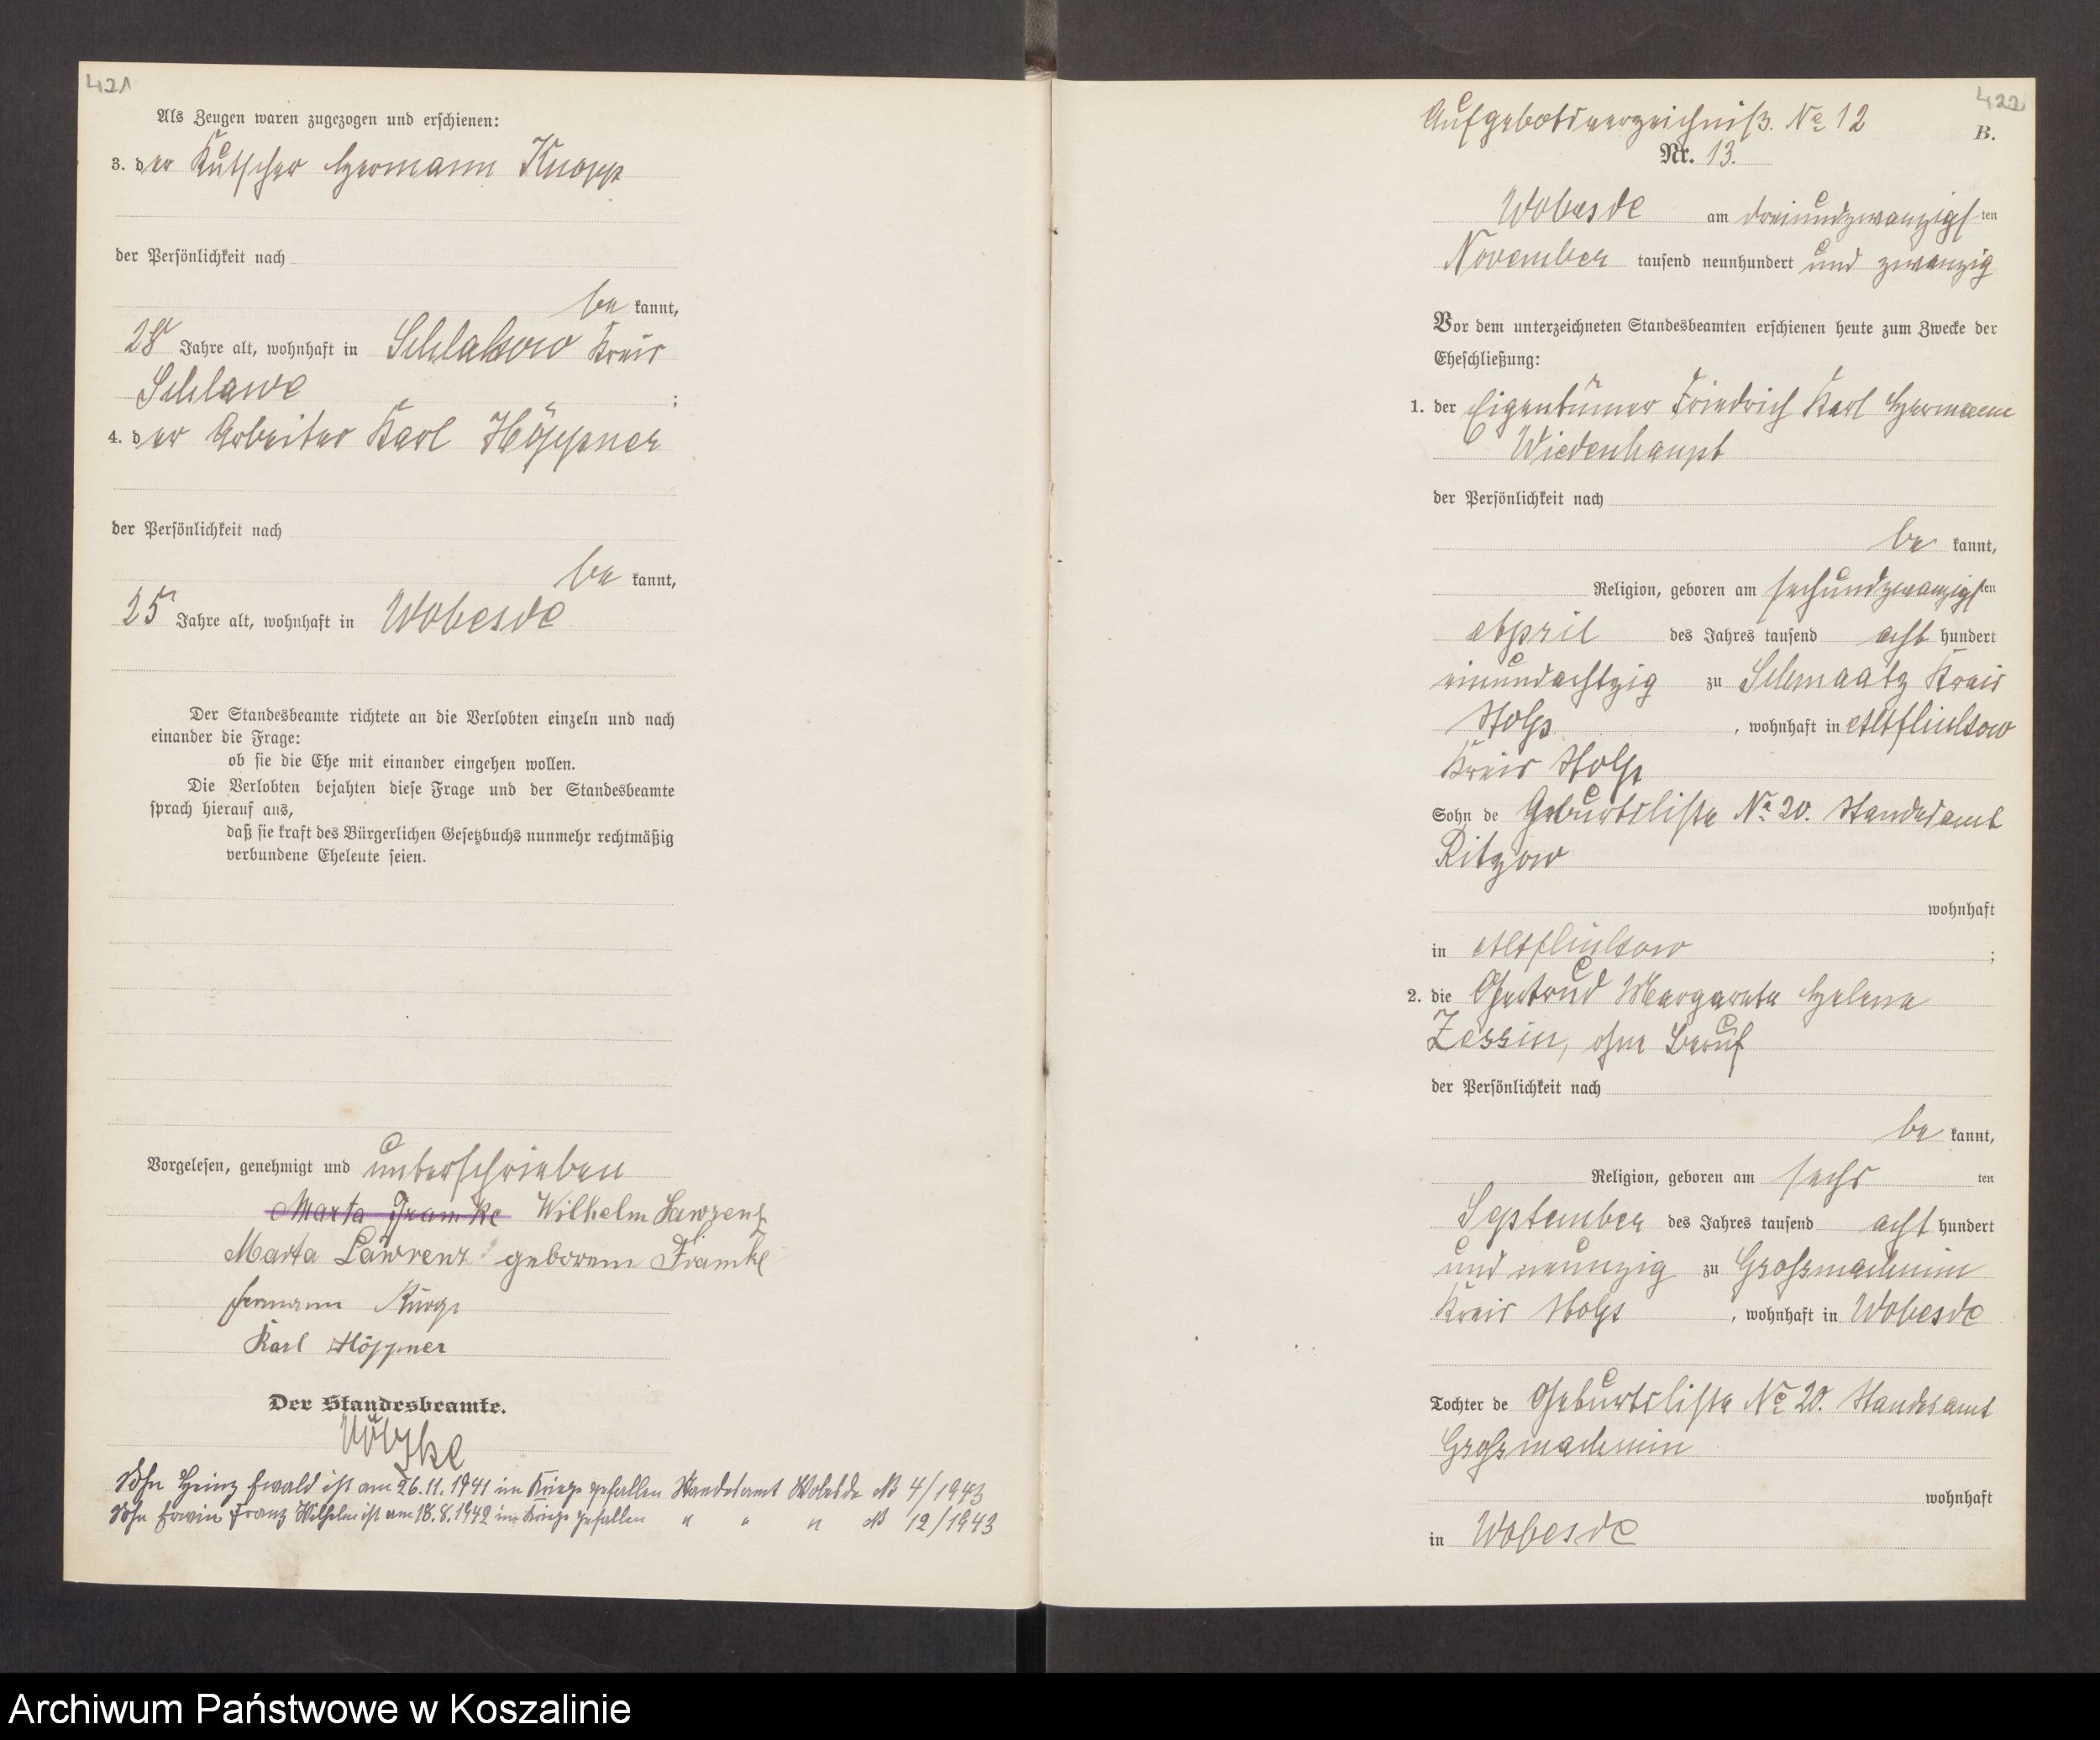 421
Als Zeugen waren zugezogen und erschienen:
3. der Kutscher Hermann Knopp
der Persönlichkeit nach
be kannt,
28 Jahre alt, wohnhaft in Schlakow Kreis
Schlawe ;
4. der Arbeiter Karl Höppner
der Persönlichkeit nach
be kannt,
25 Jahre alt, wohnhaft in Wobesde
Der Standesbeamte richtete an die Verlobten einzeln und nach
einander die Frage:
ob sie die Ehe mit einander eingehen wollen.
Die Verlobten bejahten diese Frage und der Standesbeamte
sprach hierauf aus,
daß sie kraft des Bürgerlichen Gesetzbuchs nunmehr rechtmäßig
verbundene Eheleute seien.
Vorgelesen, genehmigt und unterschrieben
Marta Framke Wilhelm Lawrenz
Marta Lawrenz geborene Framke
Hermann
Karl Höppner
Der Standesbeamte.
Sohn Heinz Ewald ist am 26.11.1941 im Kriege gefallen Standesamt Wobesde № 4/1943
Sohn Erwin Franz Wilhelm ist am 18.8.1942 im Kriege gefallen " " " № 12/1943
422
Aufgebotsverzeichniß. № 12
B.
Nr. 13.
Wobesde am dreiundzwanzigsten
November tausend neunhundert und zwanzig
Vor dem unterzeichneten Standesbeamten erschienen heute zum Zwecke der
Eheschließung:
1. der Eigentümer Friedrich Karl Hermann
Wiedenhaupt
der Persönlichkeit nach
be kannt,
Religion, geboren am sechundzwanzigsten
April des Jahres tausend acht hundert
einundachtzig zu Schmaatz Kreis
Stolp , wohnhaft in Altflinkow
Kreis Stolp
Sohn de Geburtsliste № 20. Standesamt
Ritzow
wohnhaft
in Altflinkow ;
2. die Gertrud Margarete Helene
Zessin, ohne Beruf
der Persönlichkeit nach
be kannt,
Religion, geboren am sechs ten
September des Jahres tausend acht hundert
und neunzig zu Großmachmin
Kreis Stolp , wohnhaft in Wobesde
Tochter de Geburtsliste № 20. Standesamt
Großmachmin
wohnhaft
in Wobesde
Archiwum Państwowe w Koszalinie